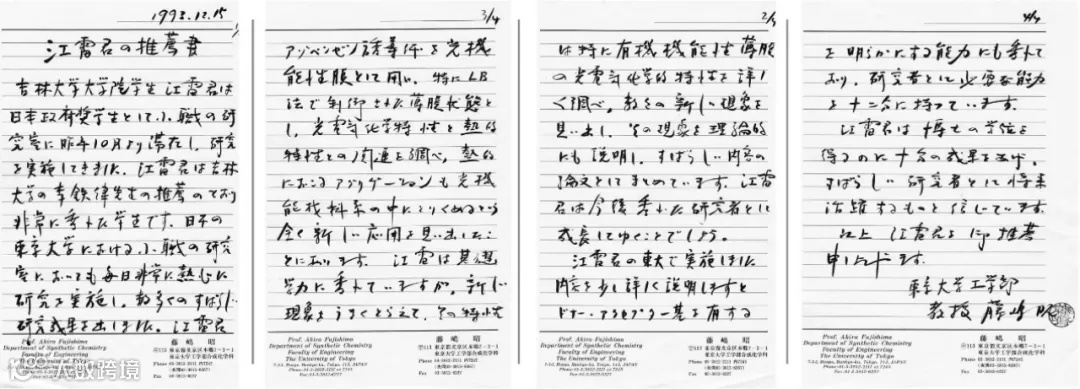 1993.12.15
江雷君の推薦書
吉林大学大学院学生 江雷君は
日本政府奨学生として小職の研
究室に昨年10月より滞在し、研究
を実施してきました。江雷君は吉林
大学の李鉄律先生の推薦のとおり
非常に秀れた学生です。日本の
東京大学における小職の研究
室においても毎日非常に熱心に
研究を実施し、数多くのすばらしい
研究成果を出しました。江雷君
Prof. Akira Fujishima
Department of Synthetic Chemistry
Faculty of Engineering
The University of Tokyo
藤嶋 昭
〒113 東京都文京区本郷7-3-1
東京大学工学部合成化学科
3/4
アゾベンゼン誘導体を光機
能性膜として用い、特にLB
法で制御された薄膜状態と
し、光電気化学特性と熱的
特性との関連を調べ、熱的
におこるアグリゲーションも光機
能材料系の中にとりくめるという
全く新しい応用を見い出したこ
とにあります。江雷君は基礎
学力に秀れていますが、新しい
現象をうまくとらえて、その特性
Prof. Akira Fujishima
Department of Synthetic Chemistry
Faculty of Engineering
The University of Tokyo
藤嶋 昭
〒113 東京都文京区本郷7-3-1
東京大学工学部合成化学科
2/4
は特に有機機能性薄膜
の光電気化学的特性を詳し
く調べ、数々の新しい現象を
見い出し、その現象を理論的
にも説明し、すばらしい内容の
論文としてまとめています。江雷
君は今後秀れた研究者として
成長してゆくことでしょう。
江雷君の東大で実施した
内容を少し詳しく説明しますと
ドナー・アクセプター基を有する
Prof. Akira Fujishima
Department of Synthetic Chemistry
Faculty of Engineering
The University of Tokyo
藤嶋 昭
〒113 東京都文京区本郷7-3-1
東京大学工学部合成化学科
4/4
を明らかにする能力にも秀れて
おり、研究者として必要な能力
を十二分に持っています。
江雷君は博士の学位を
得るのに十分の成果をあげ、
すばらしい研究者として将来
活躍するものと信じています。
以上 江雷君をご推薦
申し上げます。
東京大学工学部
教授 藤嶋 昭
Prof. Akira Fujishima
Department of Synthetic Chemistry
Faculty of Engineering
The University of Tokyo
藤嶋 昭
〒113 東京都文京区本郷7-3-1
東京大学工学部合成化学科
大数跨境